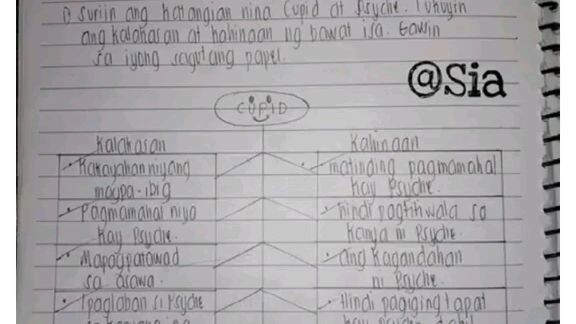 1) Suriin ang katangian nina Cupid at Psyche. Tukuyin
ang kalakasan at kahinaan ng bawat isa. Gawin
sa iyong sagutang papel.
@Sia
CUPID
Kalakasan
Kahinaan
• Kakayahan niyang
magpa-ibig
• matinding pagmamahal
kay Psyche.
• Pagmamahal niya
kay Psyche.
• hindi pagtitiwala sa
kanya ni Psyche.
• Mapagpatawad
sa asawa.
• ang kagandahan
ni Psyche.
• Ipaglaban si Psyche
• Hindi pagiging tapat
kay